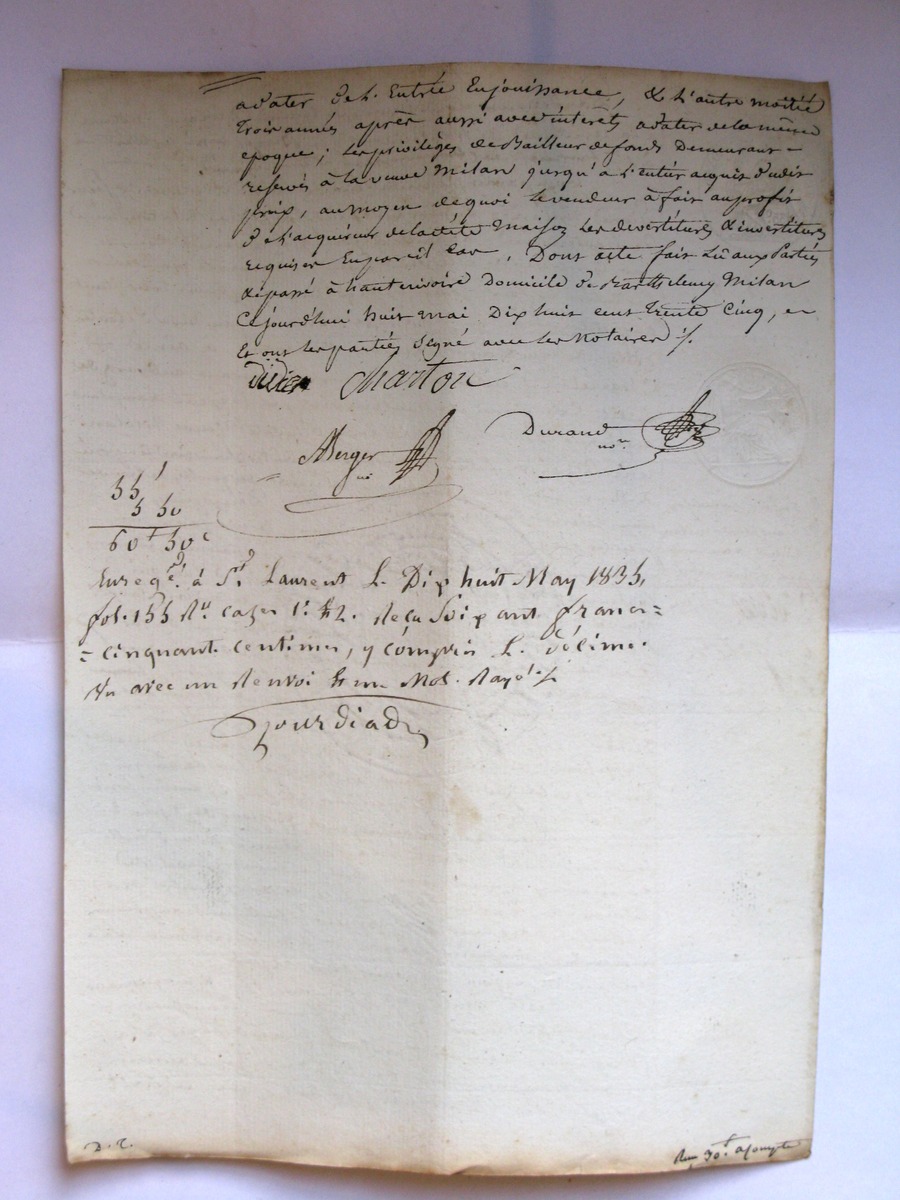 a dater de l'Entrée En jouissance, & L'autre moitié
trois années après aussi avec intérêts a dater de la même
epoque; les privilèges de Bailleur de fonds Demeurant =
reservés à la veuve Milan jusqu'à L'entier acquit dudit
prix, au moyen de quoi le vendeur à fait au profit
de L'acquéreur de la dite maison Les devestitures & investitures
requises En pareil cas, Dont acte fait Lu aux Parties
& passé à hauterivoire Domicile de Barthelemy Milan
Cejourd'hui huit mai Dix huit cent trente Cinq, &
Et ont les parties signé avec les Notaires ./.
didier Charton
Durand
nore
Berger
55
5 50
60f 50c
Enregé. à St. Laurent le Dix huit May 1835,
fol. 155 Ro cazes 1e &2. Reçu Soixant francs=
=cinquant. centimes, y compris le Décime.
avec un Renvoi & un Mot Rayé ./.
Jourdiad
D. R.
Reçu 30f acompte